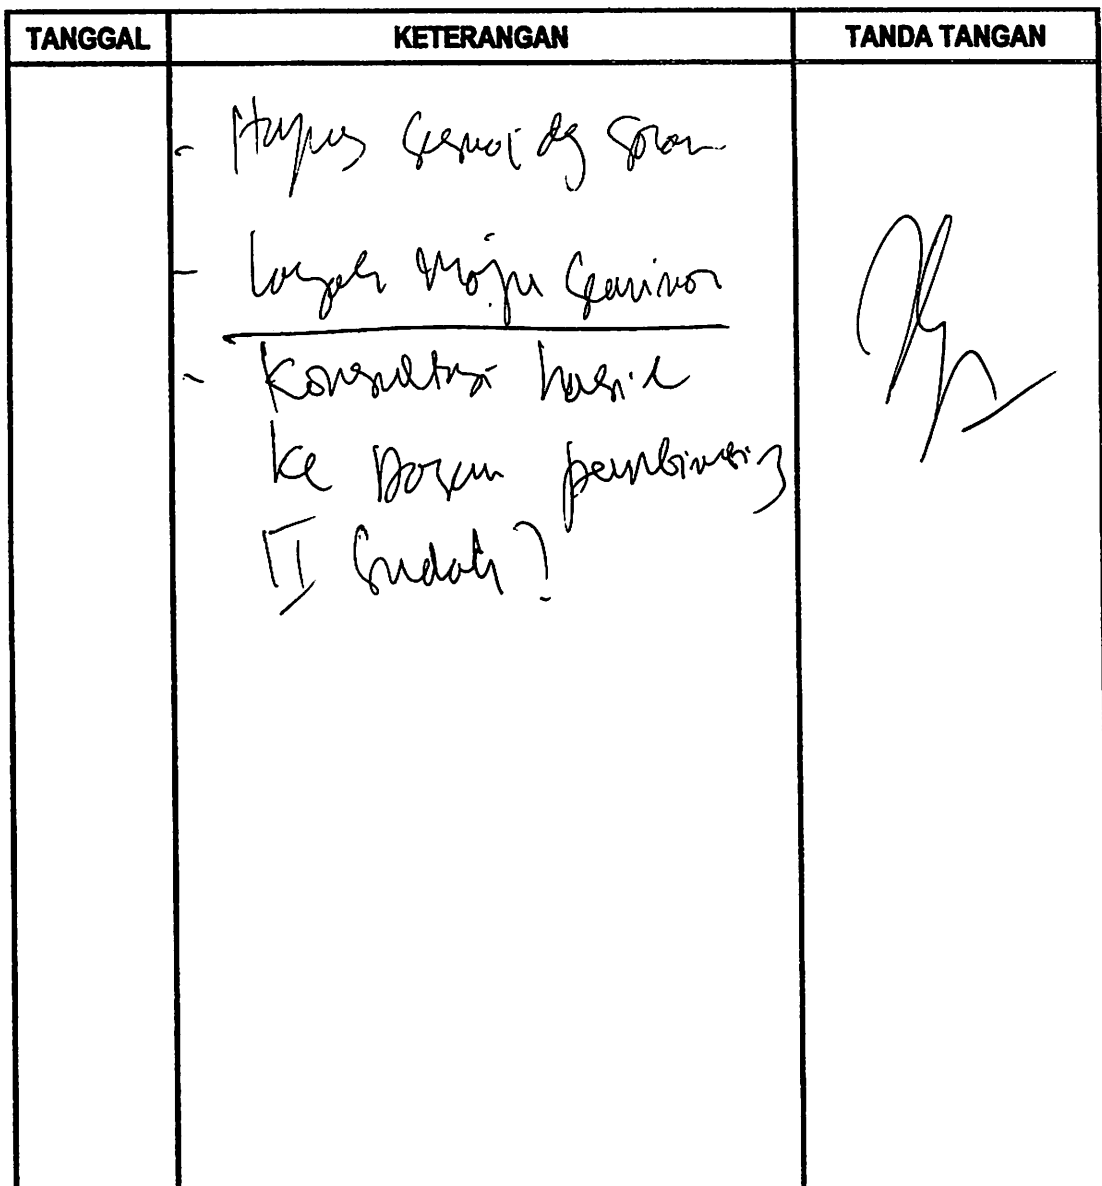 TANGGAL KETERANGAN TANDA TANGAN
- Hapus sesuai dg saran
- layak maju seminar
- Konsultasi hasil
ke Dosen pembimbing
II sudah?